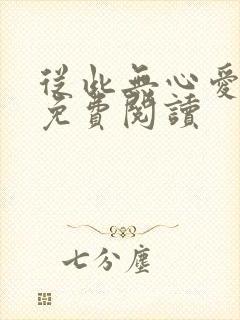 從此無心愛
免費閱讀
七分塵